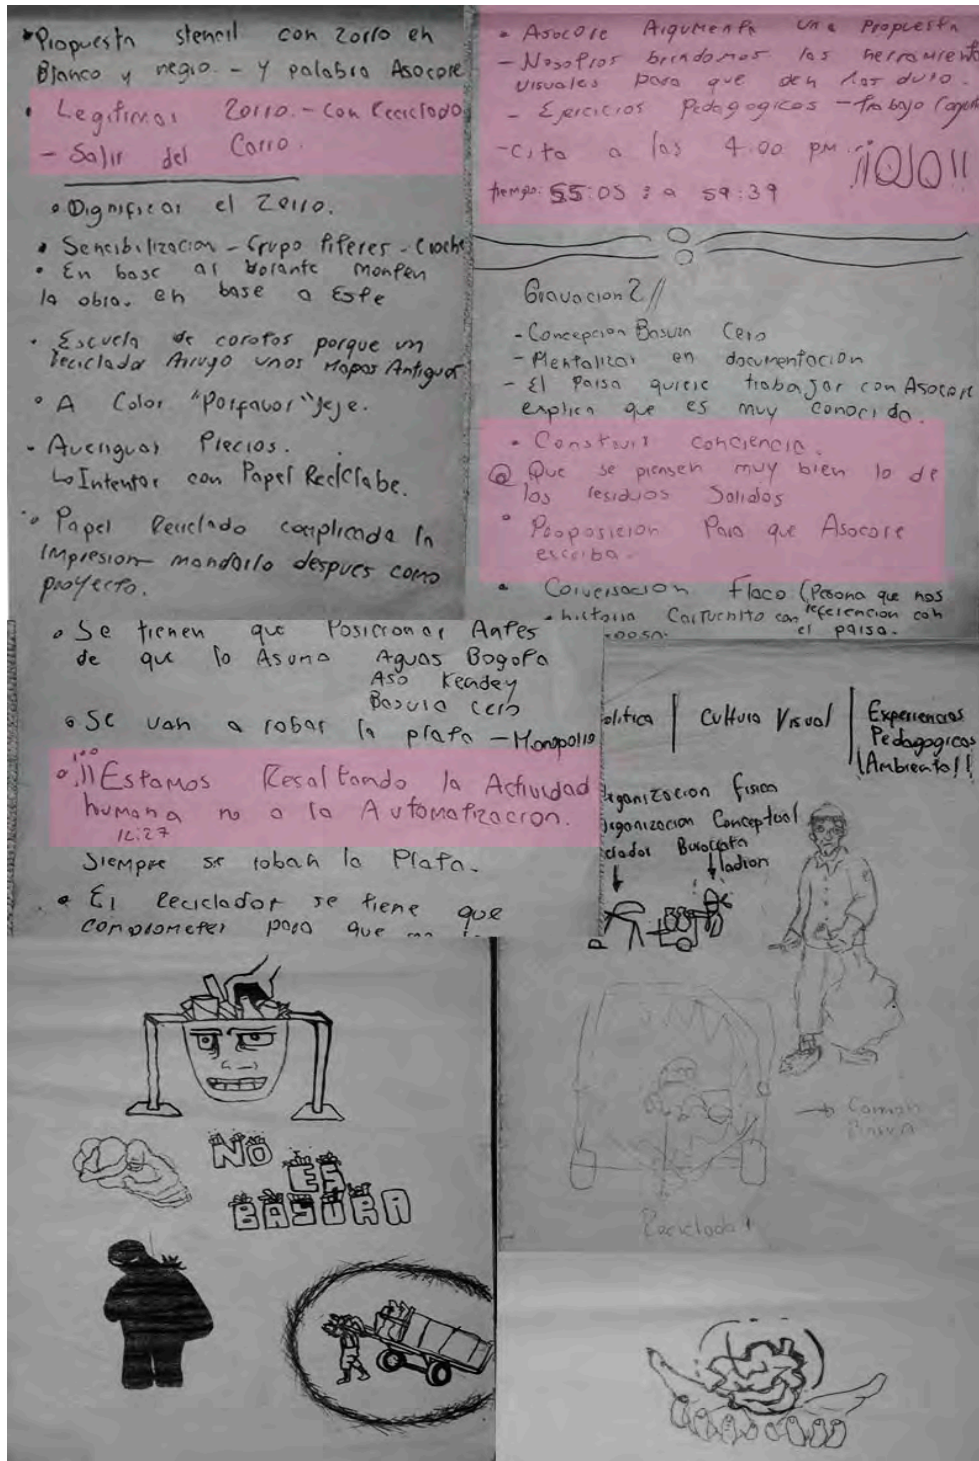 Propuesta stencil con zorro en
Blanco y negro. - Y palabra Asocore
• Legitimar zorro. - con Reciclado
- Salir del Carro.
• Dignificar el Zorro.
• Sencibilizacion - Grupo Piferes - Croche
• En base al volante monten
la obra. en base a Este
• Escuela de corotos porque un
reciclador Arrugo unos Mapas Antiguos
• A Color "Porfavor" jeje.
- Averiguar Precios.
Intentar con Papel Reciclabe.
• Papel Reciclado complicada la
impresion mandarlo despues como
proyecto.
• Asocore Argumenta una Propuesta
- Nosotros brindamos las herramienta
visuales para que den
- Ejercicios Pedagogicos - Trabajo
- Cita a las 4:00 pm. ¡¡OJO!!
tiempo: 55:05 : a 59:39
Gravacion 2 //
- Concepcion Basura Cero
- Mentalizar en documentacion
- El Paisa quiere trabajar con Asocore
explica que es muy conocido.
• Construir conciencia.
Que se piensen muy bien lo de
los residuos Solidos
• Proposicion Para que Asocore
escriba.
• Conversacion Flaco (Persona que nos
• historia Cartuchito con referencion con
el paisa.
• Se tienen que Posicionar Antes
de que lo Asuma Aguas Bogota
Aso Kendey
Basura Cero
• Se van a robar la plata - Monopolio
• ¡¡¡Estamos Resaltando la Actividad
humana no a la Automatizacion.
12:27
Siempre se roban la Plata.
• El Reciclador se tiene que
comprometer para que
olitica | Cultura Visual | Experiencias
Pedagogicas
¡Ambiental!!
rganizacion fisica
rganizacion Conceptual
clador Burocrata
ladron
NO
ES
BASURA
Reciclador